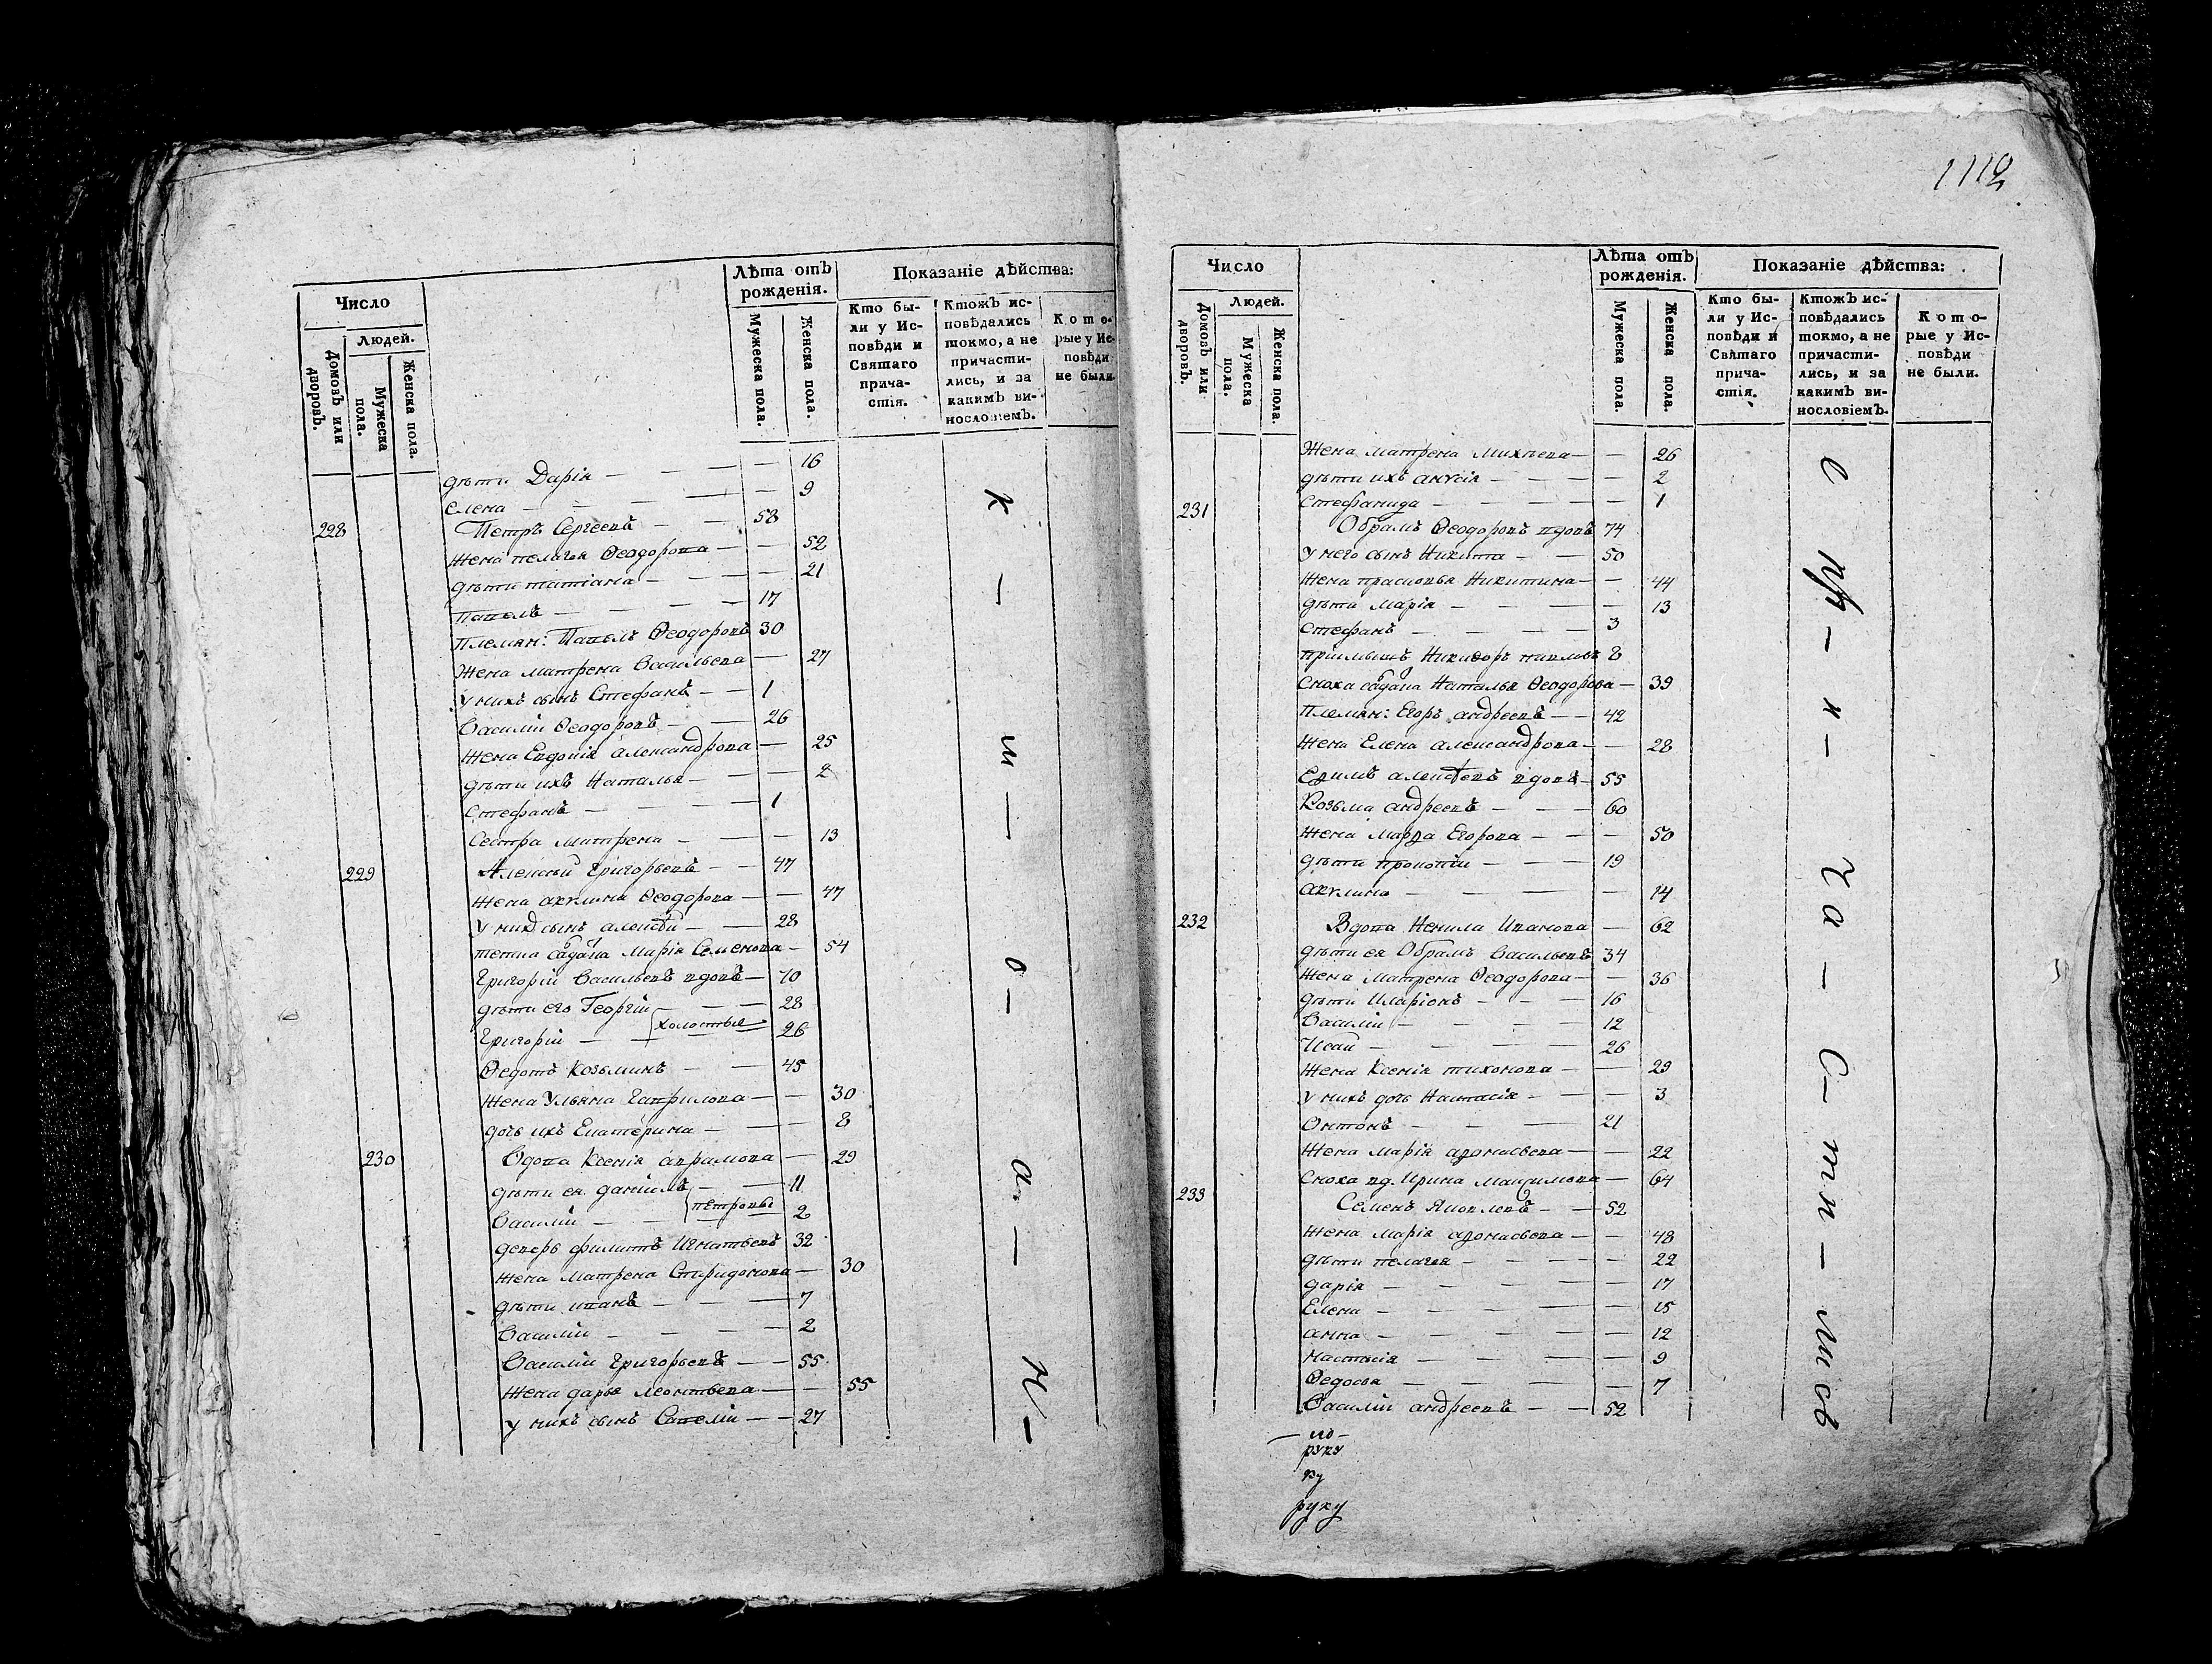 Число
Людей.
Домовъ или дворовъ.
Мужеска пола.
Женска пола.
Лѣта отъ рожденія.
Мужеска пола.
Женска пола.
Показаніе дѣйства:
Кто были у Исповѣди и Святаго причастія.
Ктожъ исповѣдались токмо, а не причастились, и за какимъ винословіемъ.
Которые у Исповѣди не были.
дѣти Дарія — — — 16
Елена — — — 9
228 Петръ Сергеевъ — — 58
Жена пелагея Ѳеодорова — — 52
дѣти татіана — — — 21
Павелъ — — — 17
Племян: Павелъ Ѳеодоровъ 30
Жена матрена Васильева — 27
У нихъ сынъ Стефанъ — — 1
Василій Ѳеодоровъ — — 26
Жена Евдокія александрова — 25
дѣти ихъ Наталья — — — 2
Стефанъ — — — 1
Сестра матрена — — — 13
229 Алексѣй Григорьевъ — — 47
Жена акулина Ѳеодорова — — 47
У них сынъ алексѣй — — 28
тетка Марія Семенова — 54
Григорій Васильевъ вдовъ — 70
дѣти его Георгій — — 28
Григорій — — холостые 26
Ѳедотъ Козьминъ — — 45
Жена Ульяна Гаврилова — — 30
дочь ихъ Екатерина — — — 8
230 Вдова Ксенія аврамова — 29
дѣти ея даніилъ — — 11
Василій — — петровы 2
деверь филипъ Игнатьевъ 32
Жена Матрена Спиридонова — 30
дѣти иванъ — — — 7
Василій — — — — 2
Василій Григорьевъ — — 55
Жена дарья леонтьева — — 55
У нихъ сынъ Савелій — — 27
к — и — о — а — н —
1112
Число
Людей.
Домовъ или дворовъ.
Мужеска пола.
Женска пола.
Лѣта отъ рожденія.
Мужеска пола.
Женска пола.
Показаніе дѣйства:
Кто были у Исповѣди и Святаго причастія.
Ктожъ исповѣдались токмо, а не причастились, и за какимъ винословіемъ.
Которые у Исповѣди не были.
Жена матрена Михеева — — 26
дѣти ихъ — — — 2
Стефанида — — — — 1
231 Обрамъ Ѳеодоровъ вдовъ 74
У него сынъ Никита — — 50
Жена прасковья Никитина — — 44
дѣти Марія — — — — 13
Стефанъ — — — — 3
пріимышъ 8
Сноха Наталья Ѳеодорова — 39
Племян: Егоръ андреевъ — — 42
Жена Елена александрова — — 28
Ефимъ алексѣевъ вдовъ — 55
Козьма андреевъ — — — 60
Жена Марѳа Егорова — — — 50
дѣти прокопіи — — — 19
акулина — — — — 14
232 Вдова Ненила Иванова — 62
дѣти ея Обрамъ Васильевъ 34
Жена Матрена Ѳеодорова — — 36
дѣти Иларіонъ — — — 16
Василій — — — — 12
Исаи — — — — 26
Жена Ксенія тихонова — — 29
У нихъ дочь Настасія — — — 3
Онтонъ — — — 21
Жена марія афонасьева — — 22
Сноха вд. Ирина Максимова — 64
233 Семенъ Яковлевъ — — 52
Жена марія афонасьева — — 48
дѣти пелагея — — — — 22
дарія — — — — 17
Елена — — — — 15
анна — — — — 12
Настасія — — — — 9
Ѳедосья — — — — 7
Василій андреевъ — — 52
с пр — и — ча — с — ти — лись
— ко —
руку
ру
руку